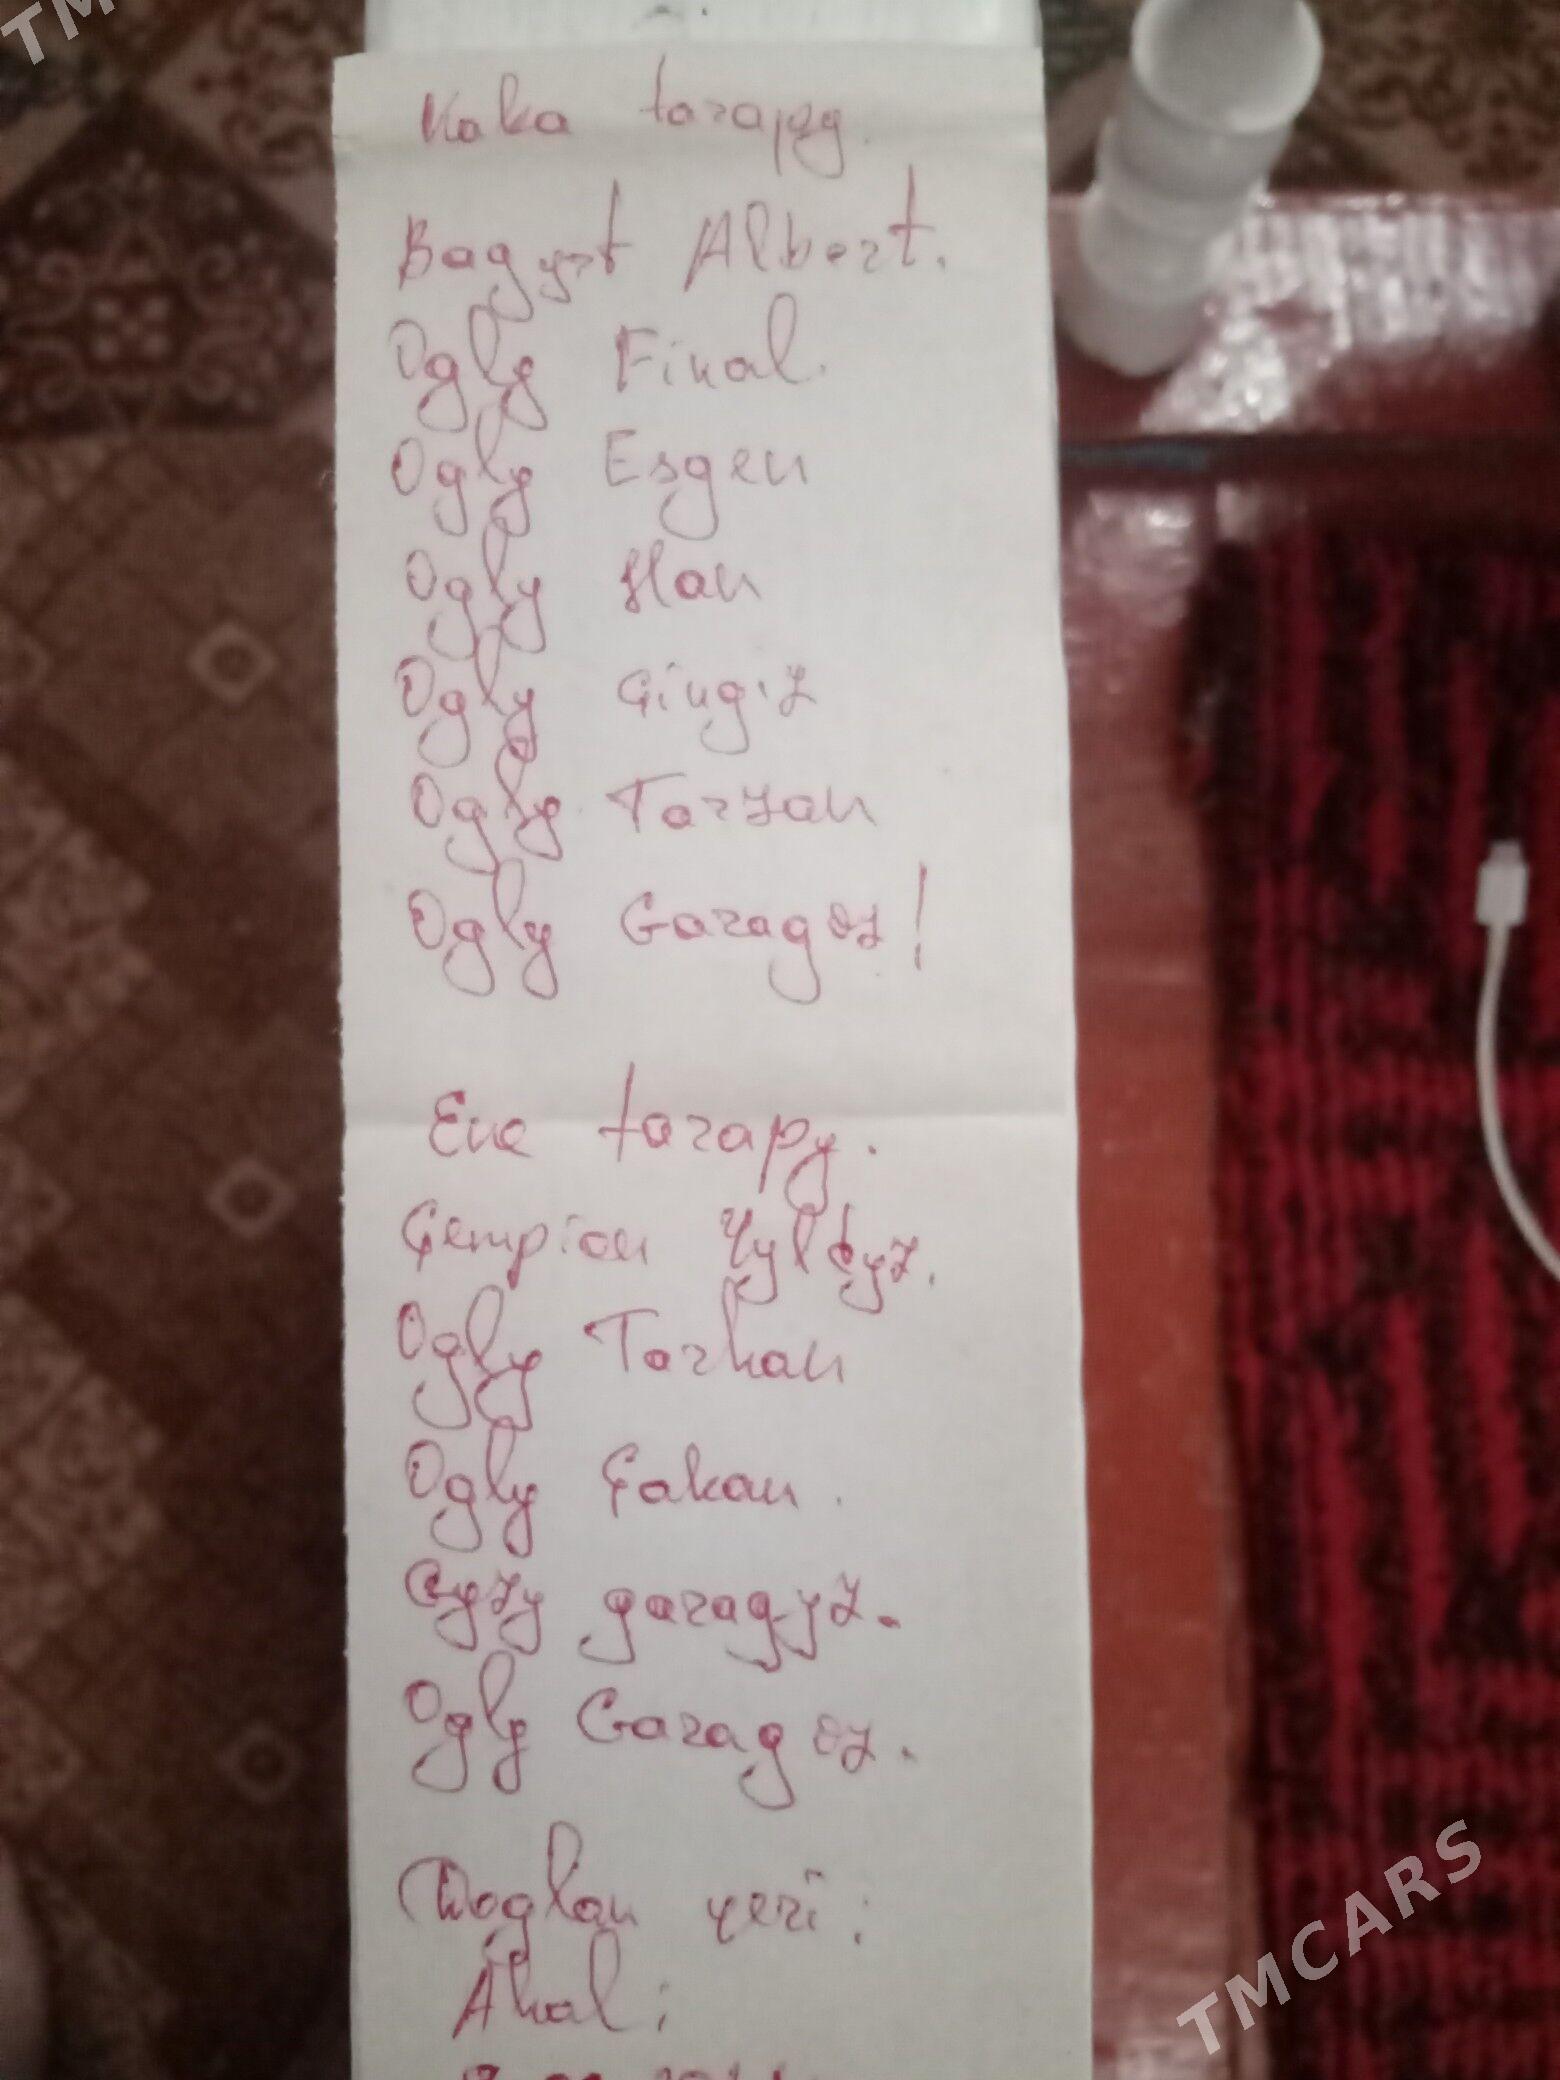 Kaka tarapy.
Bagyrt Albert.
Ogly Final.
Ogly Esger
Ogly Han
Ogly Çingiz
Ogly Tarzan
Ogly Garagöz!
Ene tarapy.
Çempion Yyldyz.
Ogly Tarhan
Ogly Çakan.
Gyzy garagyz.
Ogly Garagöz.
Doglan ýeri:
Ahal;
TMCARS